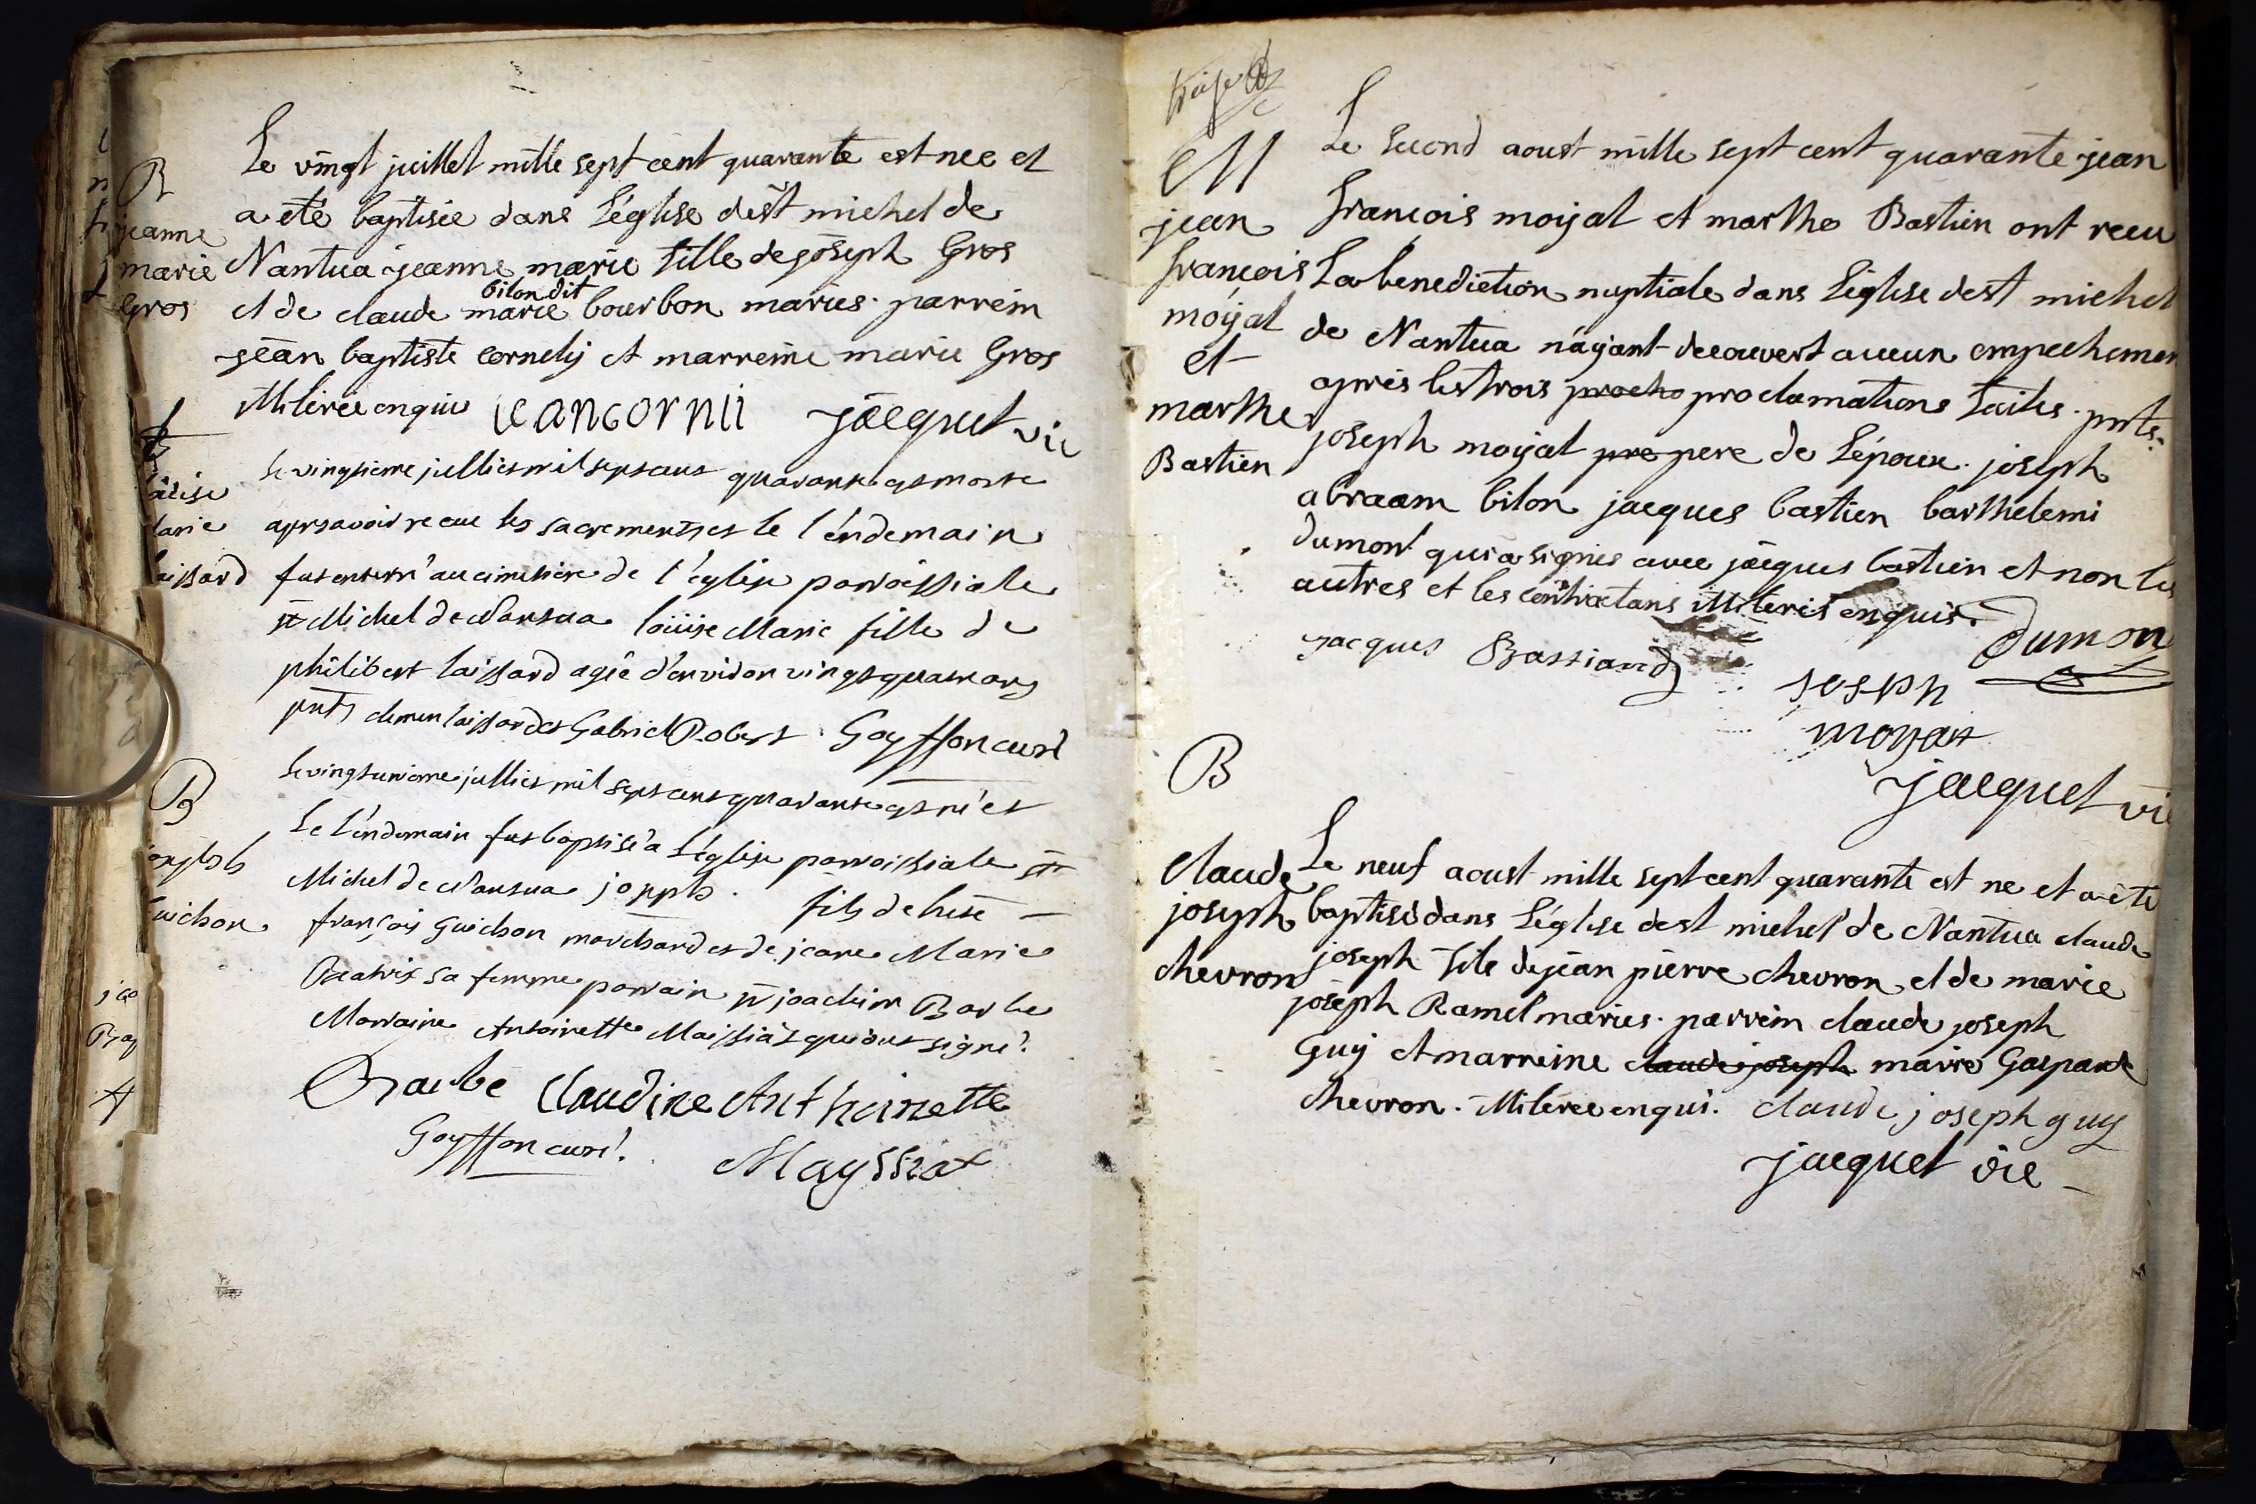 B
jeanne
marie
Gros
Le vingt juillet mille sept cent quarante est nee et
a eté baptisée dans L'église de st michel de
Nantua jeanne marie fille de joseph Gros
bilon dit
et de claude marie bourbon mariés. parrein
jean baptiste cornely et marreine marie Gros
illiterée enquis jeancornii jacquet vic
Marie
laissard
Le vingtieme julliet mil sept cent quarante est morte
apres avoir receue les sacrements et le l'endemain
fut enterré au cimetiere de l'eglise parroissiale
st Michel de Nantua loüise Marie fille de
philibert laissard agée d'environ vingt quatre ans
pnts clemen laissard et Gabriel Robert Goyffon curé
B
joseph
Guichon
Le vingt unieme julliet mil sept cent quarante est né et
le l'endemain fut baptisé a L'église parroissiale st
Michel de Nantua joseph. fils de
françois Guichon marchand et de jeane Marie
Beatrix sa femme parrain sr joachim Barbe
Marraine Antoinette Maissiat qui ont signé.
Barbe Claudine Anthoinette
Goyffon curé. Mayssiat
treize
M
jean
françois
moÿat
et
marthe
Bastien
Le second aoust mille sept cent quarante jean
françois moyat et marthe Bastien ont receu
La benediction nuptiale dans L'église de st michel
de Nantua n'ayant decouvert aucun empechemen
après les trois procla proclamations faites. pnts.
joseph moyat pre pere de L'époux. joseph
abraam bilon jacques bastien barthelemi
dumont qui a signés avec jacques bastien et non les
autres et les contractans illiterés enquis.
jacques Bastiand dumon
josph
moyat
jacquet vic
B
Claude
joseph
chevron
Le neuf aoust mille sept cent quarante est ne et a été
baptisé dans L'église de st michel de Nantua claude
joseph fils de jean pierre chevron et de marie
joseph Ramel mariés. parrein claude joseph
Guy et marreine claude joseph marie Gaspard
chevron. illiterée enqui. claude joseph guy
jacquet vic